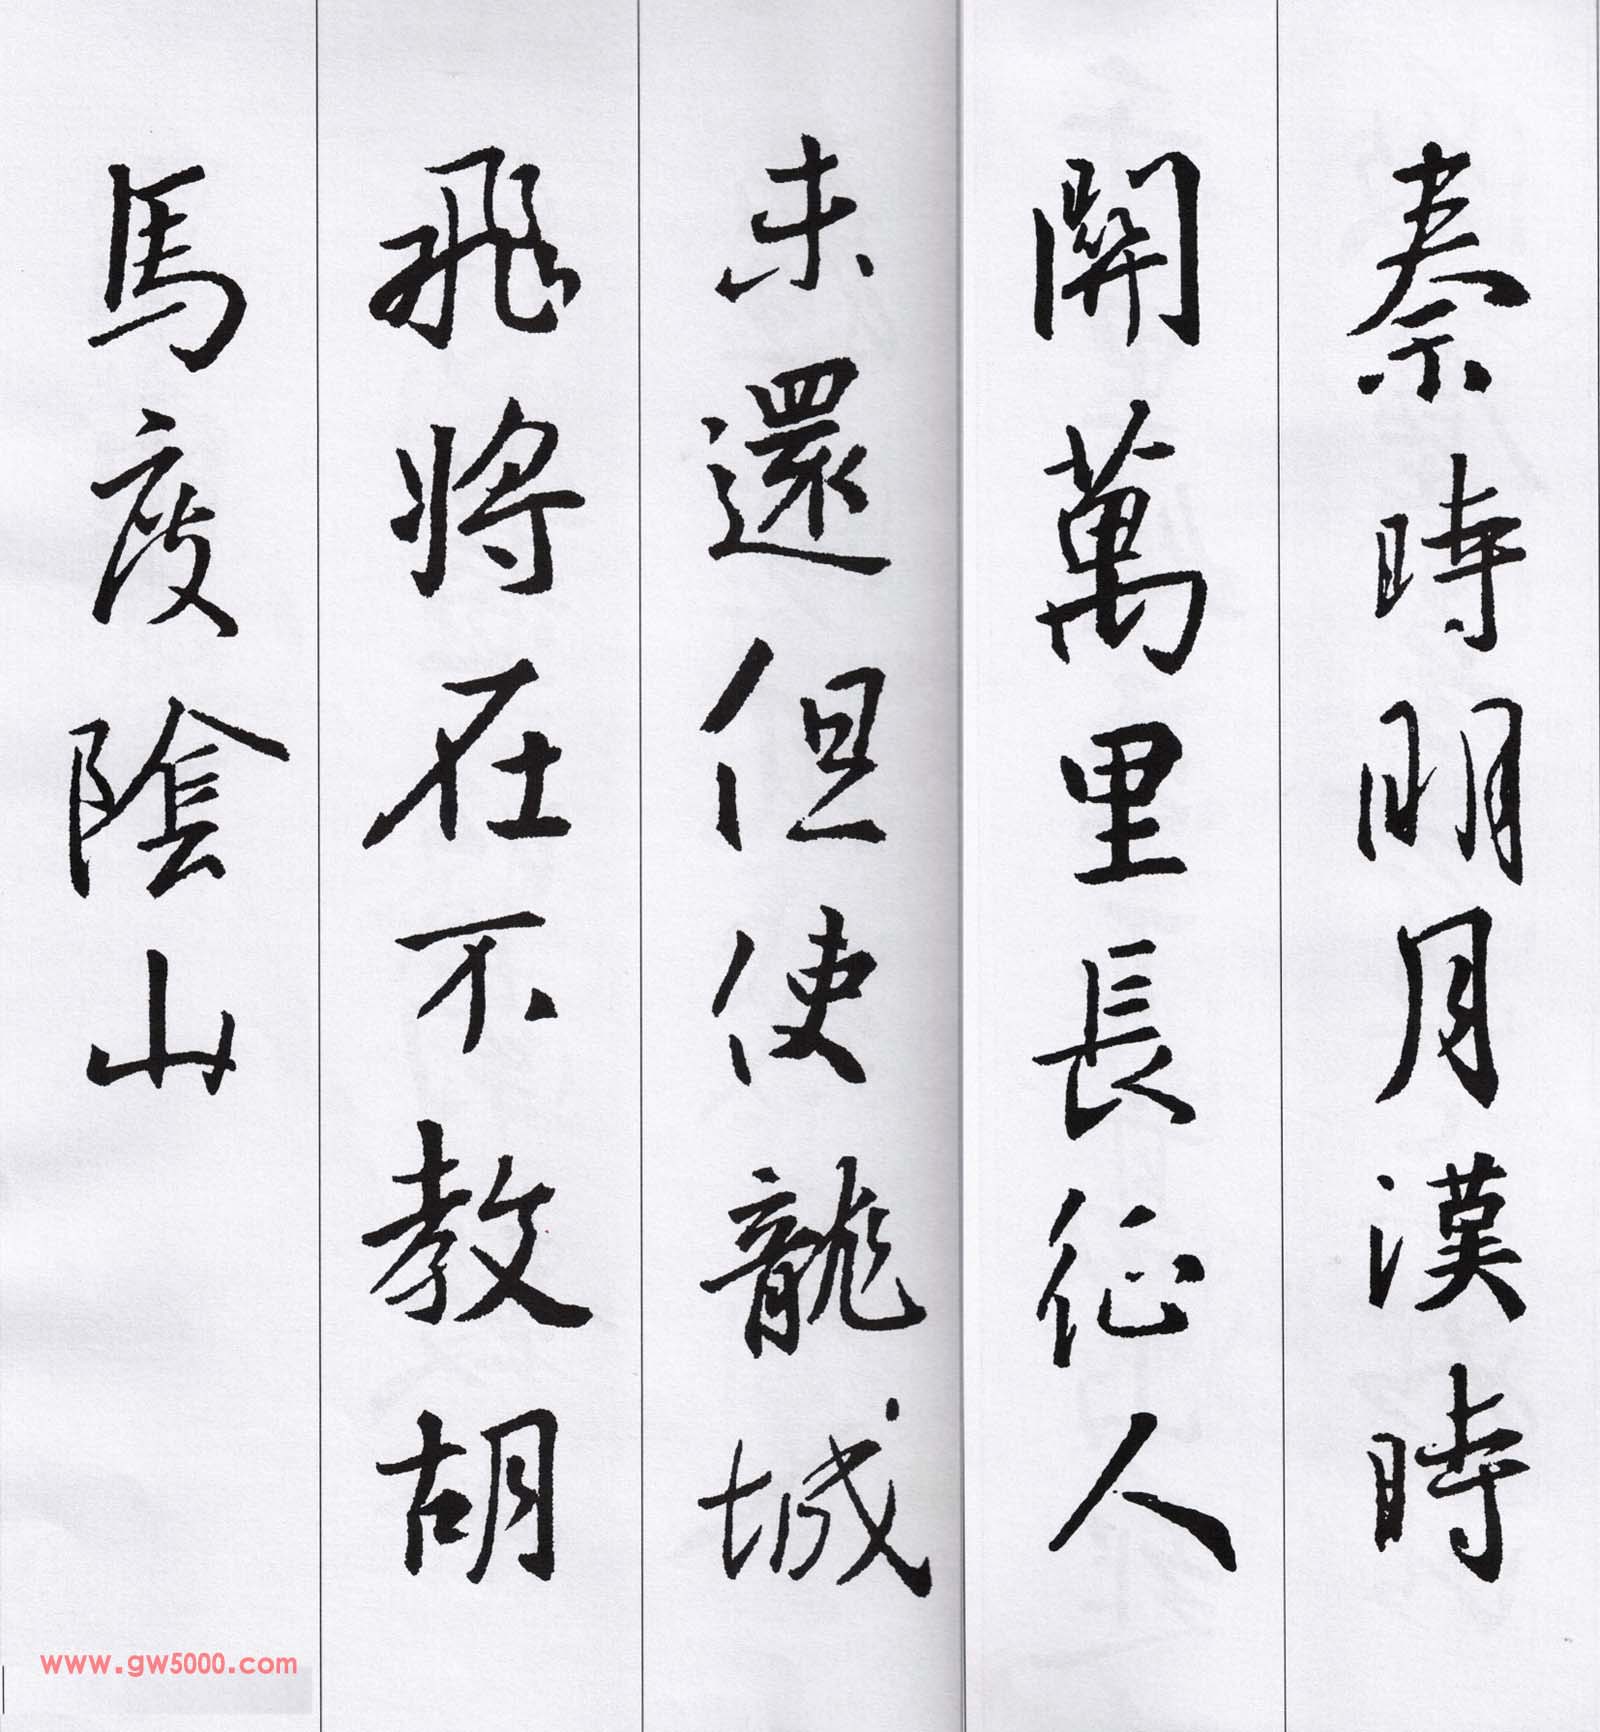 秦時明月漢時
關萬里長征人
未還但使龍城
飛將在不教胡
馬度陰山
www.gw5000.com